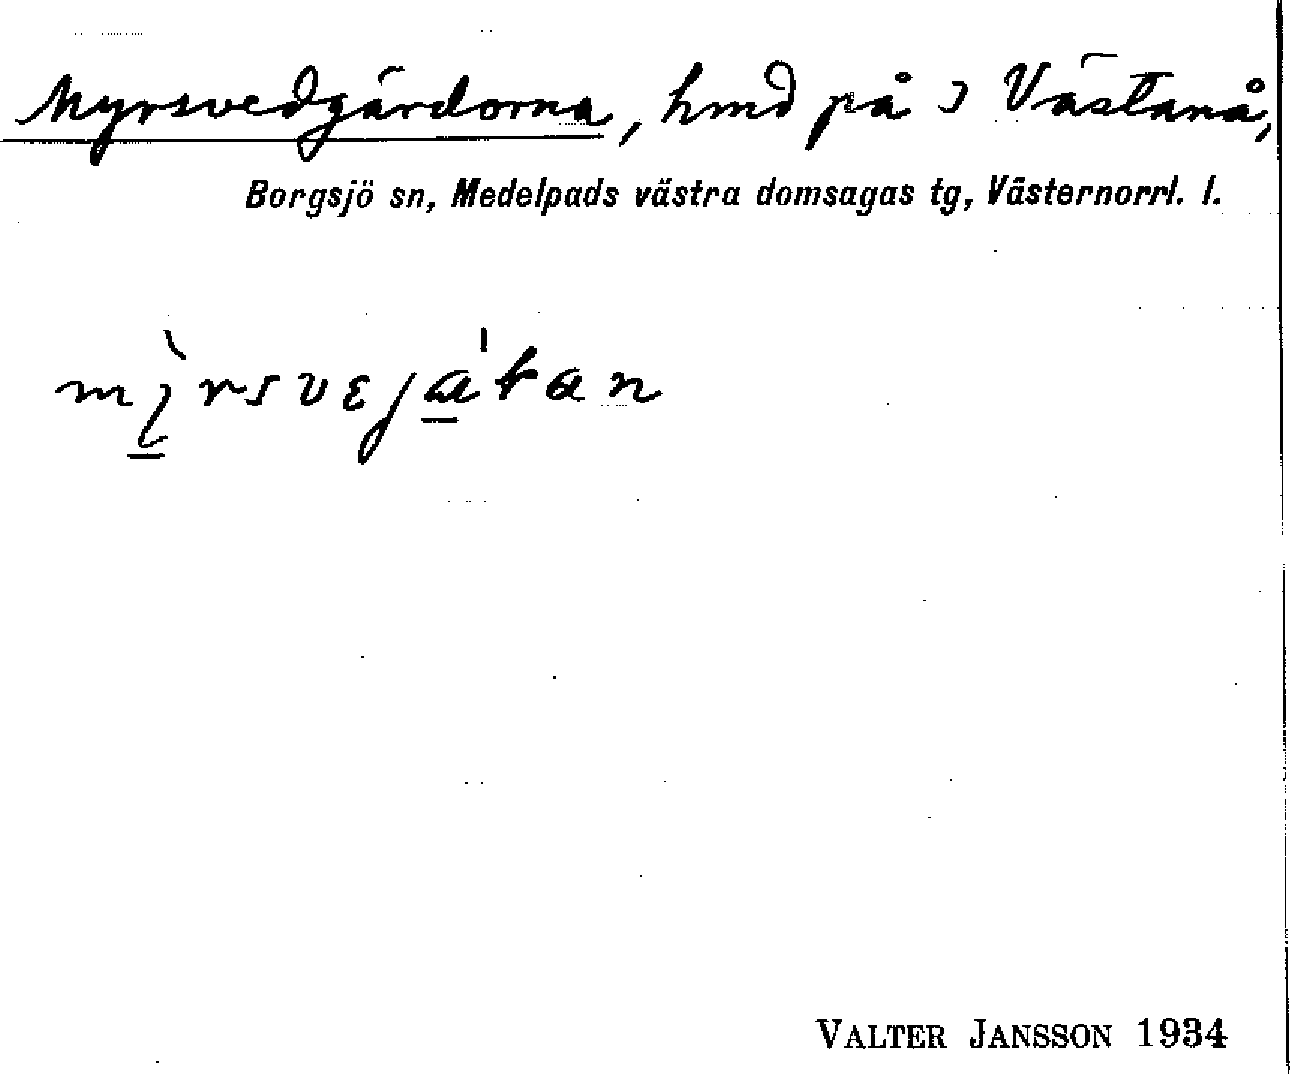 Myrsvedgärdorna, hmd på Västanå,
Borgsjö sn, Medelpads västra domsagas tg, Västernorrl. l.
VALTER JANSSON 1934